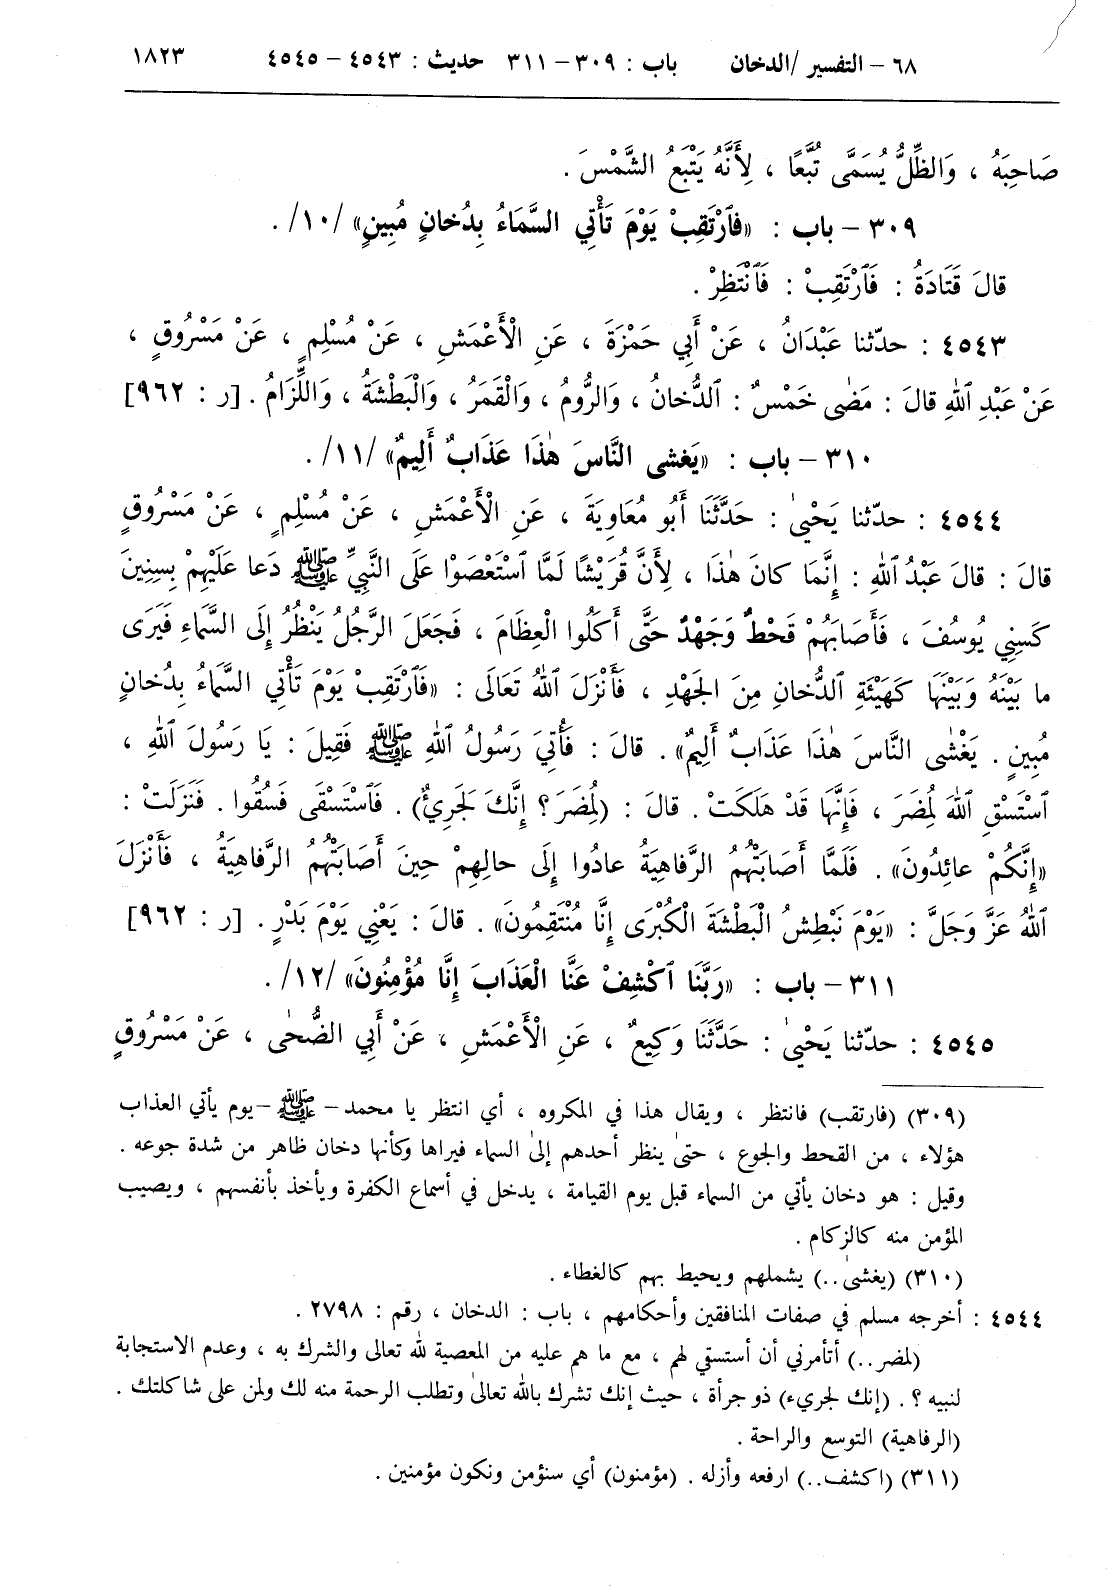 ٦٨ – التفسير /الدخان باب : ٣٠٩ – ٣١١ حديث : ٤٥٤٣ – ٤٥٤٥ ١٨٢٣
صَاحِبَهُ ، وَالظِّلُّ يُسَمَّى تُبَّعًا ، لِأَنَّهُ يَتْبَعُ الشَّمْسَ .
٣٠٩ – باب : «فَٱرْتَقِبْ يَوْمَ تَأْتِي السَّمَاءُ بِدُخانٍ مُبِينٍ» /١٠/ .
قالَ قَتَادَةُ : فَٱرْتَقِبْ : فَٱنْتَظِرْ .
٤٥٤٣ : حدّثنا عَبْدَانُ ، عَنْ أَبِي حَمْزَةَ ، عَنِ الْأَعْمَشِ ، عَنْ مُسْلِمٍ ، عَنْ مَسْرُوقٍ ،
عَنْ عَبْدِ ٱللهِ قالَ : مَضٰى خَمْسٌ : ٱلدُّخانُ ، وَالرُّومُ ، وَالْقَمَرُ ، وَالْبَطْشَةُ ، وَاللِّزَامُ . [ر : ٩٦٢]
٣١٠ – باب : «يَغشى النَّاسَ هٰذَا عَذَابٌ أَلِيمٌ» /١١/ .
٤٥٤٤ : حدّثنا يَحْيىٰ : حَدَّثَنَا أَبُو مُعَاوِيَةَ ، عَنِ الْأَعْمَشِ ، عَنْ مُسْلِمٍ ، عَنْ مَسْرُوقٍ
قالَ : قالَ عَبْدُ ٱللهِ : إِنَّمَا كانَ هٰذَا ، لِأَنَّ قُرَيْشًا لَمَّا ٱسْتَعْصَوْا عَلَى النَّبِيِّ ﷺ دَعا عَلَيْهِمْ بِسِنِينَ
كَسِنِي يُوسُفَ ، فَأَصَابَهُمْ قَحْطٌ وَجَهْدٌ حَتَّى أَكَلُوا الْعِظَامَ ، فَجَعَلَ الرَّجُلُ يَنْظُرُ إِلَى السَّمَاءِ فَيَرَى
ما بَيْنَهُ وَبَيْنَهَا كَهَيْئَةِ ٱلدُّخانِ مِنَ الجَهْدِ ، فَأَنْزَلَ ٱللهُ تَعَالَى : «فَٱرْتَقِبْ يَوْمَ تَأْتِي السَّمَاءُ بِدُخانٍ
مُبِينٍ . يَغْشٰى النَّاسَ هٰذَا عَذَابٌ أَلِيمٌ» . قالَ : فَأُتِيَ رَسُولُ ٱللهِ ﷺ فَقِيلَ : يَا رَسُولَ ٱللهِ ،
ٱسْتَسْقِ ٱللهَ لِمُضَرَ ، فَإِنَّهَا قَدْ هَلَكَتْ . قالَ : (لِمُضَرَ ؟ إِنَّكَ لَجَرِيءٌ) . فَٱسْتَسْقَى فَسُقُوا . فَنَزَلَتْ :
«إِنَّكُمْ عائِدُونَ» . فَلَمَّا أَصَابَتْهُمُ الرَّفاهِيَةُ عادُوا إِلَى حالِهِمْ حِينَ أَصَابَتْهُمُ الرَّفاهِيَةُ ، فَأَنْزَلَ
ٱللهُ عَزَّ وَجَلَّ : «يَوْمَ نَبْطِشُ الْبَطْشَةَ الْكُبْرَى إِنَّا مُنْتَقِمُونَ» . قالَ : يَعْنِي يَوْمَ بَدْرٍ . [ر : ٩٦٢]
٣١١ – باب : «رَبَّنَا ٱكْشِفْ عَنَّا الْعَذَابَ إِنَّا مُؤْمِنُونَ» /١٢/ .
٤٥٤٥ : حدّثنا يَحْيىٰ : حَدَّثَنَا وَكِيعٌ ، عَنِ الْأَعْمَشِ ، عَنْ أَبِي الضُّحٰى ، عَنْ مَسْرُوقٍ
(٣٠٩) (فارتقب) فانتظر ، ويقال هذا في المكروه ، أي انتظر يا محمد – ﷺ – يوم يأتي العذاب
هؤلاء ، من القحط والجوع ، حتىٰ ينظر أحدهم إلىٰ السماء فيراها وكأنها دخان ظاهر من شدة جوعه .
وقيل : هو دخان يأتي من السماء قبل يوم القيامة ، يدخل في أسماع الكفرة ويأخذ بأنفسهم ، ويصيب
المؤمن منه كالزكام .
(٣١٠) (يغشىٰ..) يشملهم ويحيط بهم كالغطاء .
٤٥٤٤ : أخرجه مسلم في صفات المنافقين وأحكامهم ، باب : الدخان ، رقم : ٢٧٩٨ .
(لمضر..) أتأمرني أن أستسقي لهم ، مع ما هم عليه من المعصية لله تعالى والشرك به ، وعدم الاستجابة
لنبيه ؟ . (إنك لجريء) ذو جرأة ، حيث إنك تشرك بالله تعالىٰ وتطلب الرحمة منه لك ولمن على شاكلتك .
(الرفاهية) التوسع والراحة .
(٣١١) (اكشف..) ارفعه وأزله . (مؤمنون) أي سنؤمن ونكون مؤمنين .